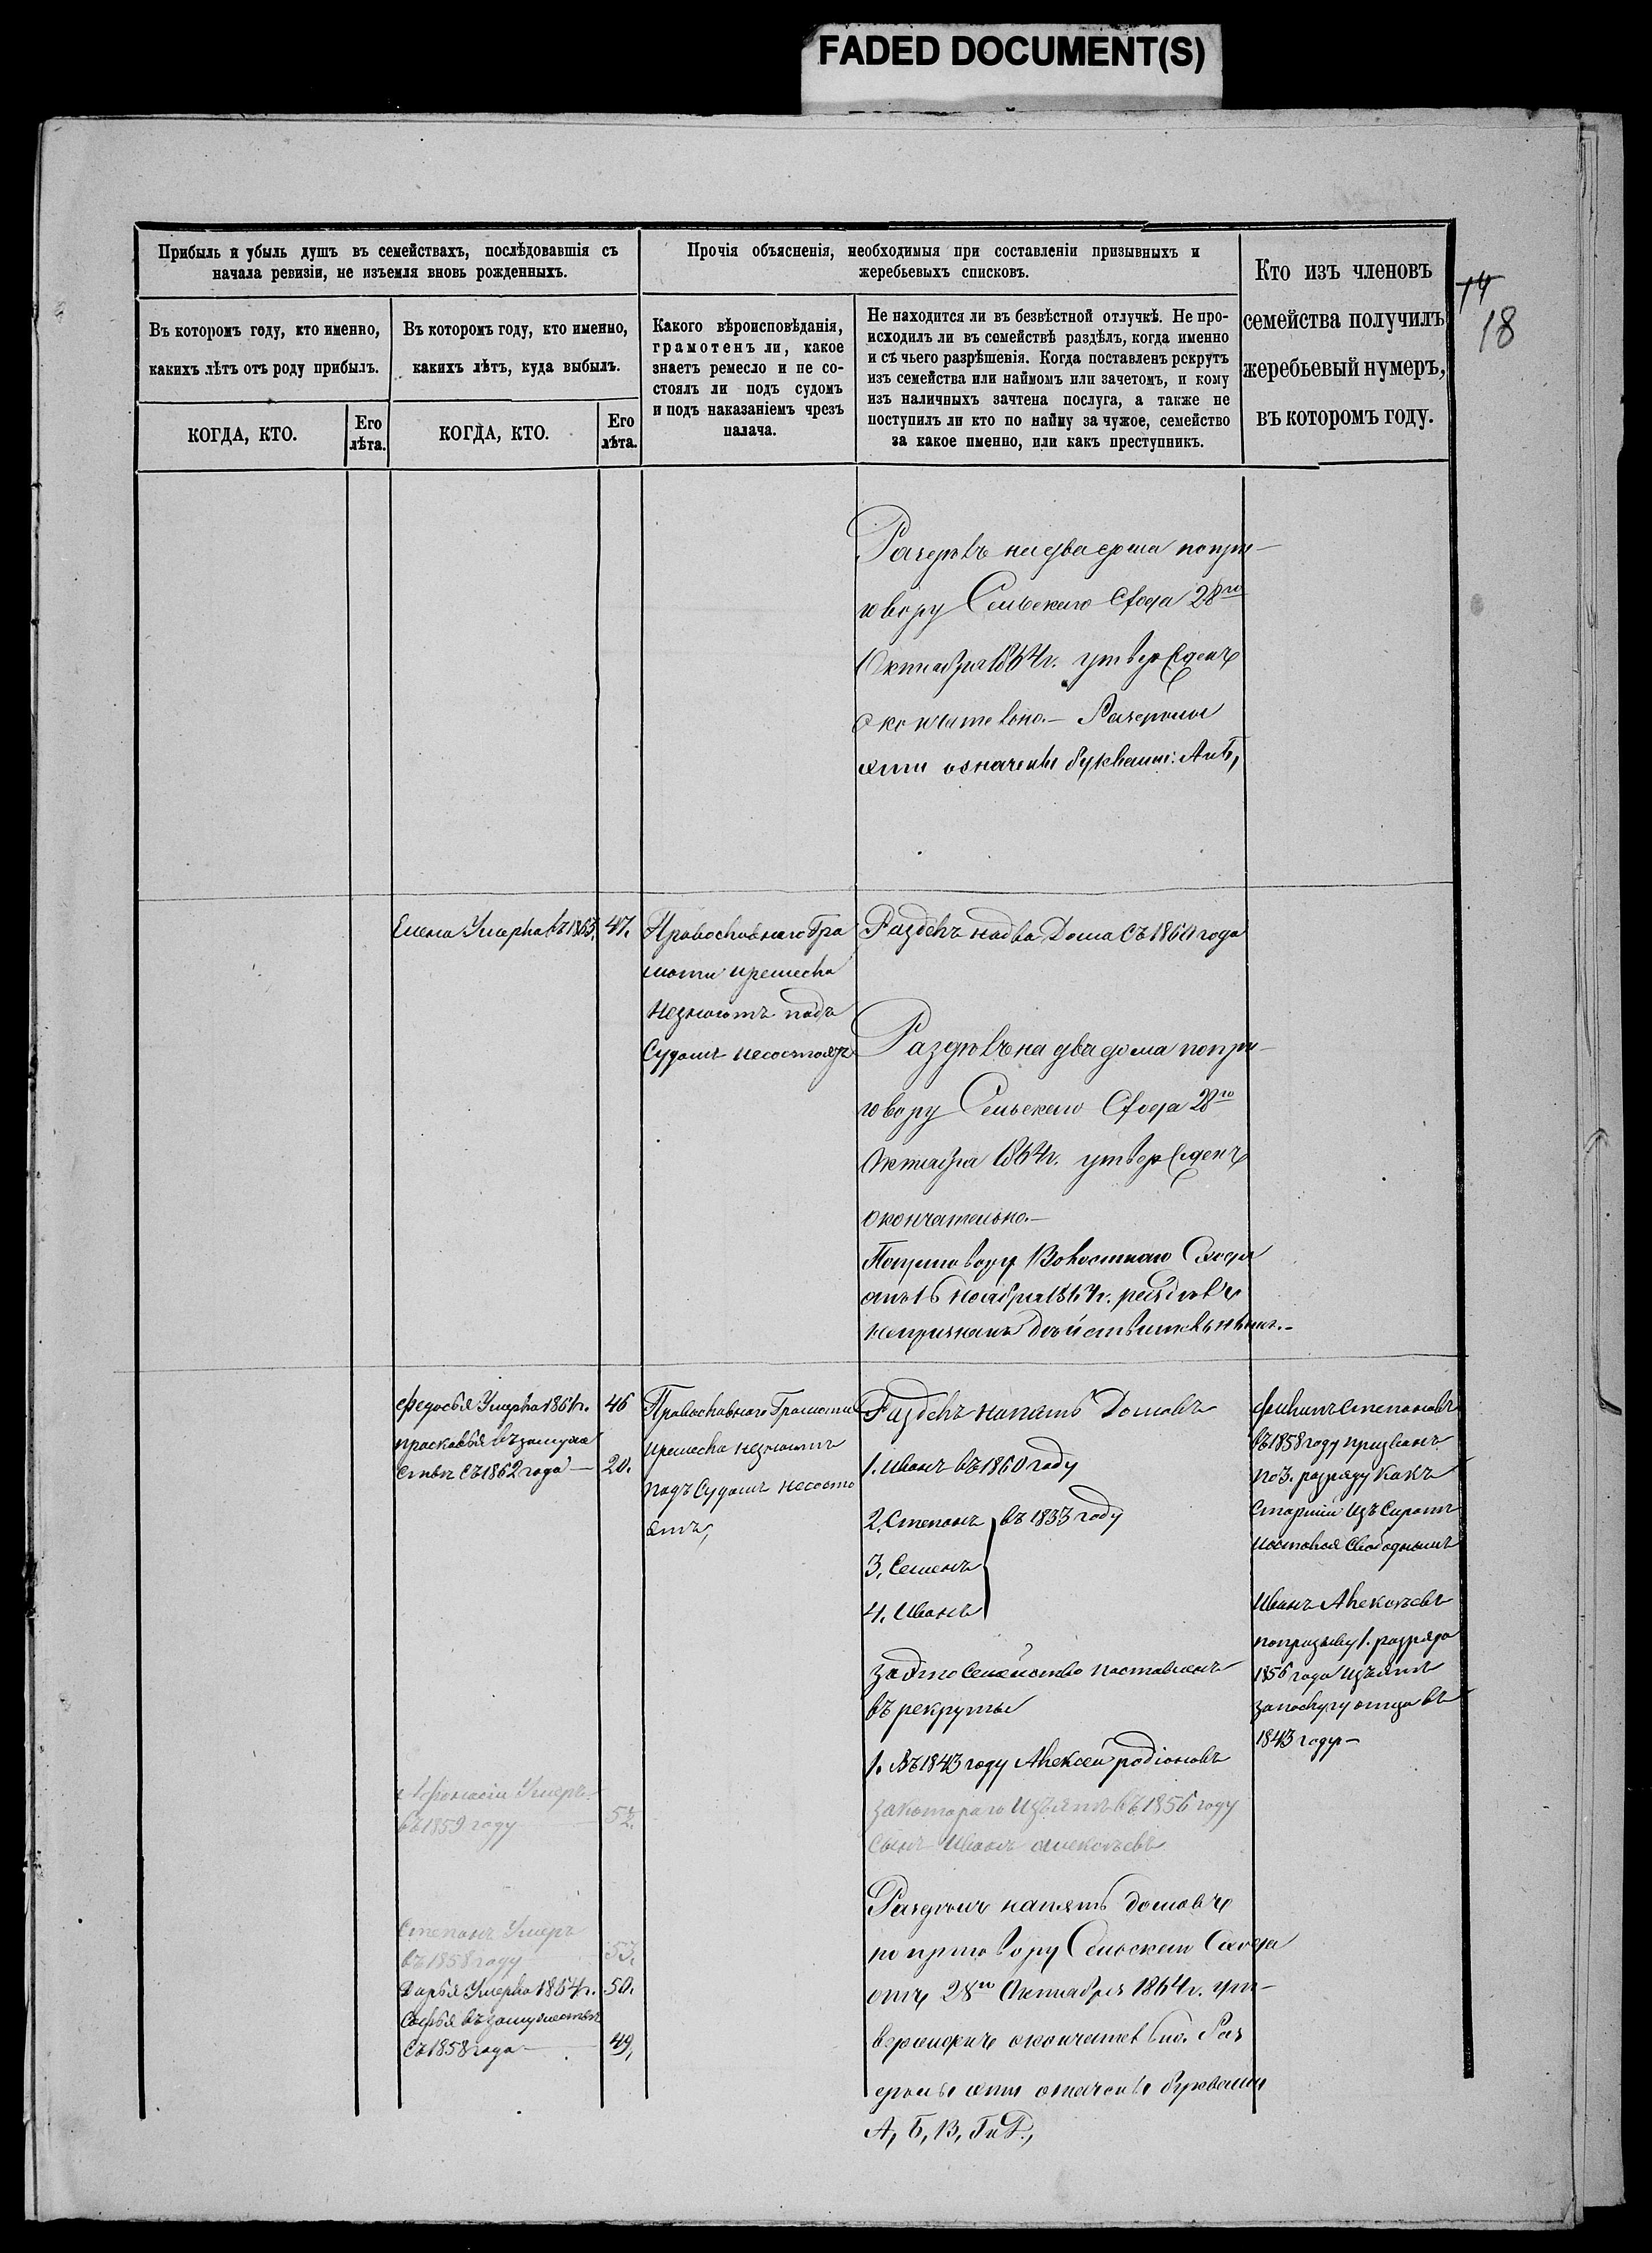 FADED DOCUMENT(S)
Прибыль и убыль душъ въ семействахъ, послѣдовавшія съ
начала ревизіи, не изъемля вновь рожденныхъ.
Прочія объясненія, необходимыя при составленіи призывныхъ и
жеребьевыхъ списковъ.
Кто изъ членовъ
семейства получилъ
жеребьевый нумеръ,
въ которомъ году.
14
18
Въ которомъ году, кто именно,
какихъ лѣтъ отъ роду прибылъ.
Въ которомъ году, кто именно,
какихъ лѣтъ, куда выбылъ.
Какого вѣроисповѣданія,
грамотенъ ли, какое
знаетъ ремесло и не со-
стоялъ ли подъ судомъ
и подъ наказаніемъ чрезъ
палача.
Не находится ли въ безвѣстной отлучкѣ. Не про-
исходилъ ли въ семействѣ раздѣлъ, когда именно
и съ чьего разрѣшенія. Когда поставленъ рекрутъ
изъ семейства или наймомъ или зачетомъ, и кому
изъ наличныхъ зачтена послуга, а также не
поступилъ ли кто по найму за чужое, семейство
за какое именно, или какъ преступникъ.
КОГДА, КТО.
Его
лѣта.
КОГДА, КТО.
Его
лѣта.
Раздѣлъ на два дома по при-
говору Сельскаго Схода 28го
Октября 1864г. утвержденъ
окончательно.— Раздѣлы
эти означены буквами: А и Б,
Елена Умерла въ 1863, 47.
Православнаго Гра
моти и ремесла
незнаютъ подъ
Судомъ несостоятъ
Раздѣлъ на два Дома Съ 1860 года
Раздѣлъ на два дома по при-
говору Сельскаго Схода 28го
Октября 1864г. утвержденъ
окончательно.—
По приговору Волостнаго Схода
отъ 16 Ноября 1864г. раздѣлъ
непризнанъ дѣйствительнымъ.—
Федосья Умерла 1861г. 46
прасковья въ замуже
ствѣ Съ 1862 года — 20.
Православнаго Грамоти
и ремесла незнаютъ
подъ Судомъ несосто
ятъ,
Раздѣлъ напять Домовъ
1. Иванъ въ 1860 году
2. Степанъ въ 1833 году
3. Семенъ
4. Иванъ
За это Семейство поставленъ
въ рекруты
1. Въ 1843 году Алексей родіоновъ
за котораго Изъятъ въ 1856 году
Сынъ Иванъ алексѣевъ
Раздѣлъ на пять домовъ
по приговору Сельскаго Схода
отъ 28го Октября 1864г. ут-
вержденъ окончательно. Раз
дѣлы эти означены буквами
А, Б, В, Г и Д.,
филипъ Степановъ
въ 1858 году призванъ
по 3. разряду какъ
Старшій Изъ Сиротъ
и оставленъ Свободнымъ
Иванъ Алексѣевъ
по призыву 1. разряда
1856 года Изъятъ
за послугу отца въ
1843 году—
Афонасій Умеръ
въ 1859 году 52.
Степанъ Умеръ
въ 1858 году 53.
Дарья Умерла 1864г. 50.
Софья въ замужествѣ
Съ 1858 года — 49,